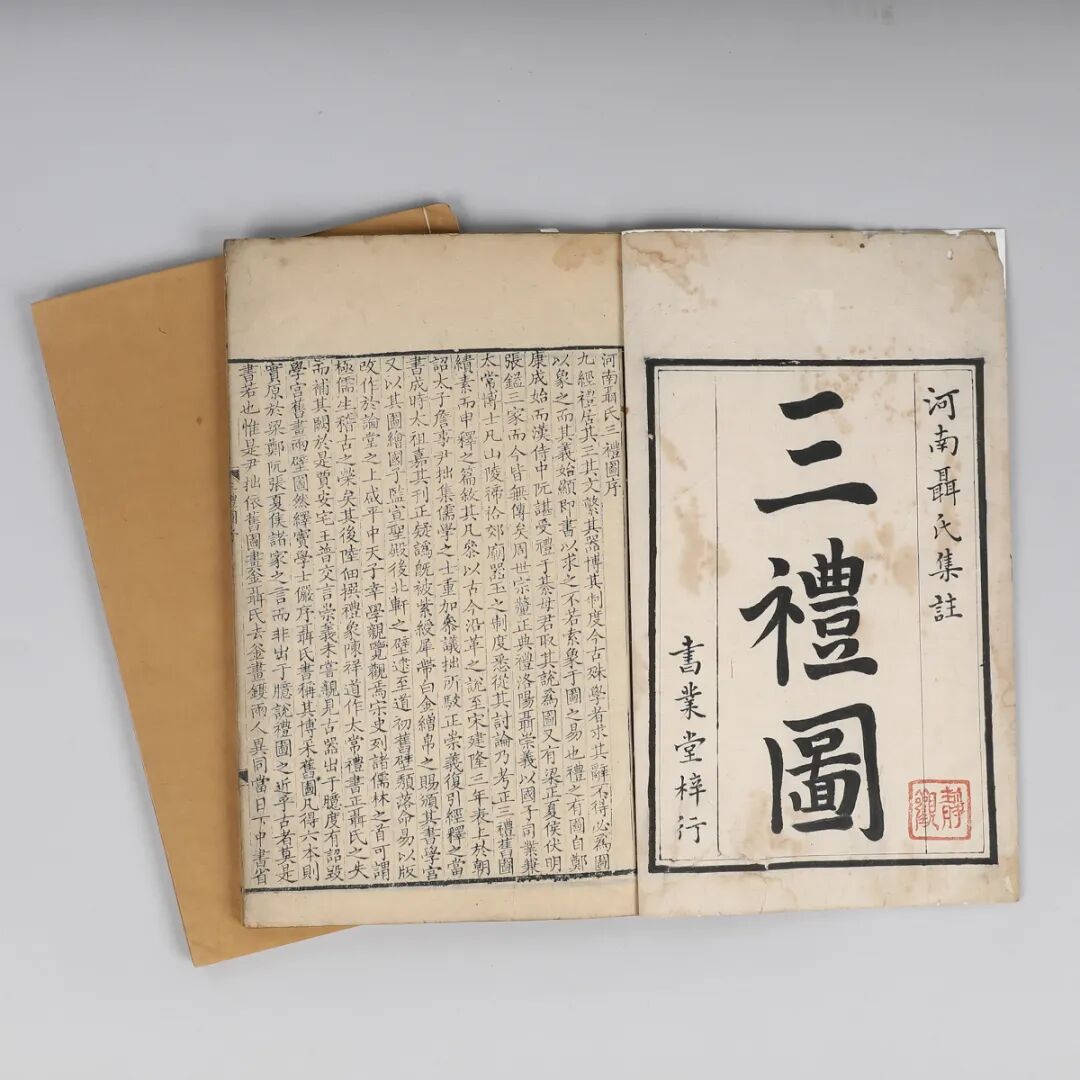 河南聶氏集註
三禮圖
書業堂梓行
靜觀
河南聶氏三禮圖序
九經禮居其三其文繁其器博其制度今古殊學者求其辭不得必為圖
以象之而其義始顯即書以求之不若索象于圖之易也禮之有圖自鄭
康成始而漢侍中阮諶受禮于綦母君取其說為圖又有梁正夏侯伏明
張鎰三家而今皆無傳矣周世宗釐正典禮洛陽聶崇義以國子司業兼
太常博士凡山陵禘祫郊廟器玉之制度悉從其討論乃考正三禮舊圖
績素而申釋之篇敘其凡參以古今沿革之說至宋建隆三年表上於朝
詔太子詹事尹拙集儒學之士重加參議拙所駁正崇義復引經釋之當
書成時太祖嘉其刊正疑譌旣被紫綬犀帶白金繒帛之賜頒其書學宮
又以其圖繪國子監宣聖殿後北軒之壁逮至道初舊壁頹落命易以版
改作於論堂之上咸平中天子幸學親覽觀焉宋史列諸儒林之首可謂
極儒生稽古之榮矣其後陸佃撰禮象陳祥道作太常禮書正聶氏之失
而補其闕於是賈安宅王普交言崇義未嘗親見古器出于臆度有詔毀
學宮舊畫兩壁圖然繹竇學士儼序聶氏書稱其博采舊圖凡得六本則
實原於梁鄭阮張夏侯諸家之言而非出于臆說禮圖之近乎古者莫是
書若也惟是尹拙依舊圖畫釜聶氏去釜畫鑊兩人異同當日下中書省